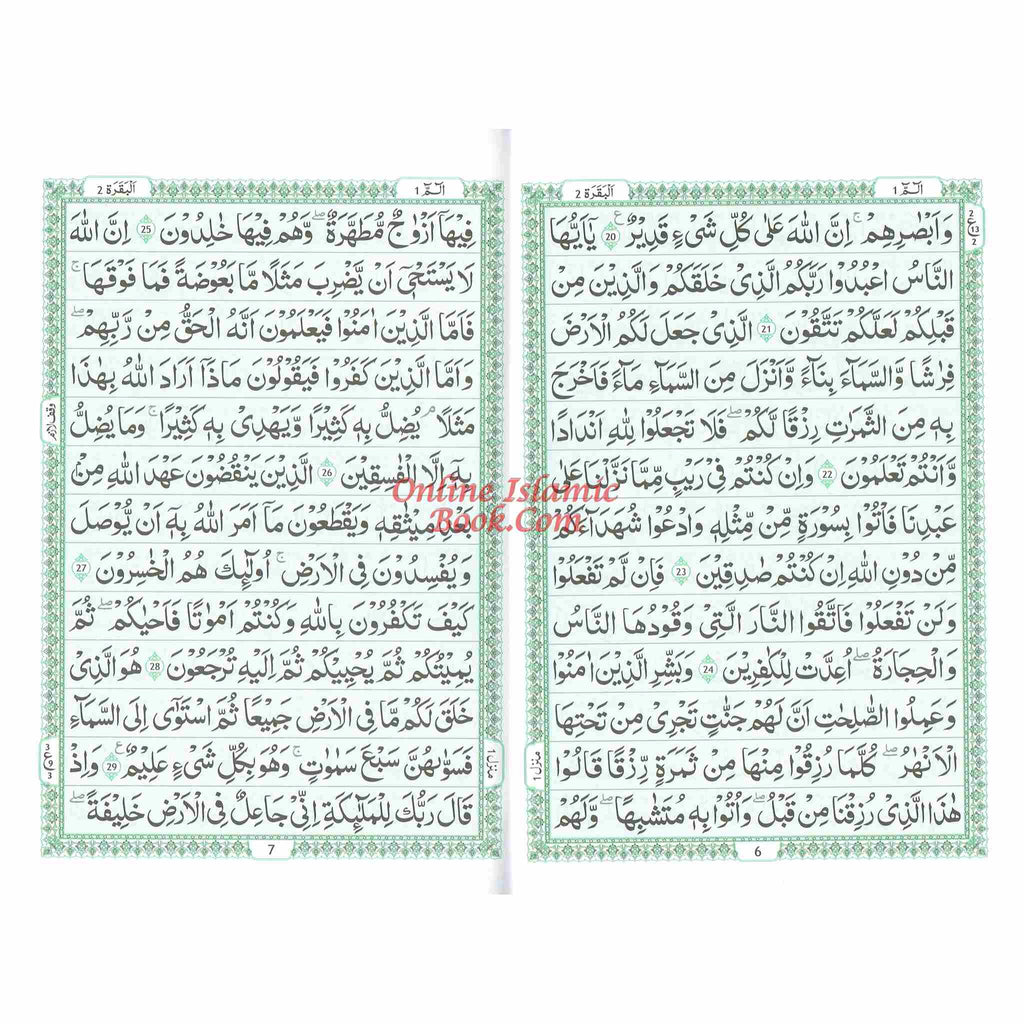 الٓمّٓ 1
اَلْبَقَرَة 2
وَاَبْصَارِهِمْ ؕ اِنَّ اللّٰهَ عَلٰى كُلِّ شَىْءٍ قَدِيْرٌ 20 يٰٓاَيُّهَا
النَّاسُ اعْبُدُوْا رَبَّكُمُ الَّذِىْ خَلَقَكُمْ وَالَّذِيْنَ مِنْ
قَبْلِكُمْ لَعَلَّكُمْ تَتَّقُوْنَ 21 الَّذِىْ جَعَلَ لَكُمُ الْاَرْضَ
فِرَاشًا وَّالسَّمَآءَ بِنَآءً وَّاَنْزَلَ مِنَ السَّمَآءِ مَآءً فَاَخْرَجَ
بِهٖ مِنَ الثَّمَرٰتِ رِزْقًا لَّكُمْ ۖ فَلَا تَجْعَلُوْا لِلّٰهِ اَنْدَادًا
وَّاَنْتُمْ تَعْلَمُوْنَ 22 وَاِنْ كُنْتُمْ فِىْ رَيْبٍ مِّمَّا نَزَّلْنَا عَلٰى
عَبْدِنَا فَاْتُوْا بِسُوْرَةٍ مِّنْ مِّثْلِهٖ وَادْعُوْا شُهَدَآءَكُمْ
مِّنْ دُوْنِ اللّٰهِ اِنْ كُنْتُمْ صٰدِقِيْنَ 23 فَاِنْ لَّمْ تَفْعَلُوْا
وَلَنْ تَفْعَلُوْا فَاتَّقُوا النَّارَ الَّتِىْ وَقُوْدُهَا النَّاسُ
وَالْحِجَارَةُ ۖ اُعِدَّتْ لِلْكٰفِرِيْنَ 24 وَبَشِّرِ الَّذِيْنَ اٰمَنُوْا
وَعَمِلُوا الصّٰلِحٰتِ اَنَّ لَهُمْ جَنّٰتٍ تَجْرِىْ مِنْ تَحْتِهَا
الْاَنْهٰرُ ۖ كُلَّمَا رُزِقُوْا مِنْهَا مِنْ ثَمَرَةٍ رِّزْقًا قَالُوْا
هٰذَا الَّذِىْ رُزِقْنَا مِنْ قَبْلُ ۖ وَاُتُوْا بِهٖ مُتَشَابِهًا ۖ وَلَهُمْ
2 ع 13 2
منزل 1
6
الٓمّٓ 1
اَلْبَقَرَة 2
فِيْهَآ اَزْوَاجٌ مُّطَهَّرَةٌ ۖ وَّهُمْ فِيْهَا خٰلِدُوْنَ 25 اِنَّ اللّٰهَ
لَا يَسْتَحْىٖٓ اَنْ يَّضْرِبَ مَثَلًا مَّا بَعُوْضَةً فَمَا فَوْقَهَا ۚ
فَاَمَّا الَّذِيْنَ اٰمَنُوْا فَيَعْلَمُوْنَ اَنَّهُ الْحَقُّ مِنْ رَّبِّهِمْ ۖ
وَاَمَّا الَّذِيْنَ كَفَرُوْا فَيَقُوْلُوْنَ مَاذَآ اَرَادَ اللّٰهُ بِهٰذَا
مَثَلًا ۘ يُضِلُّ بِهٖ كَثِيْرًا وَّيَهْدِىْ بِهٖ كَثِيْرًا ۚ وَمَا يُضِلُّ
بِهٖٓ اِلَّا الْفٰسِقِيْنَ 26 الَّذِيْنَ يَنْقُضُوْنَ عَهْدَ اللّٰهِ مِنْۢ
بَعْدِ مِيْثٰقِهٖ وَيَقْطَعُوْنَ مَآ اَمَرَ اللّٰهُ بِهٖٓ اَنْ يُّوْصَلَ
وَيُفْسِدُوْنَ فِى الْاَرْضِ ۚ اُولٰٓئِكَ هُمُ الْخٰسِرُوْنَ 27
كَيْفَ تَكْفُرُوْنَ بِاللّٰهِ وَكُنْتُمْ اَمْوَاتًا فَاَحْيٰكُمْ ۖ ثُمَّ
يُمِيْتُكُمْ ثُمَّ يُحْيِيْكُمْ ثُمَّ اِلَيْهِ تُرْجَعُوْنَ 28 هُوَ الَّذِىْ
خَلَقَ لَكُمْ مَّا فِى الْاَرْضِ جَمِيْعًا ثُمَّ اسْتَوٰٓى اِلَى السَّمَآءِ
فَسَوّٰىهُنَّ سَبْعَ سَمٰوٰتٍ ۚ وَهُوَ بِكُلِّ شَىْءٍ عَلِيْمٌ 29 وَاِذْ
قَالَ رَبُّكَ لِلْمَلٰٓئِكَةِ اِنِّىْ جَاعِلٌ فِى الْاَرْضِ خَلِيْفَةً ۖ
وقف لازم
3 ع 9 3
منزل 1
7
Online Islamic
Book.Com